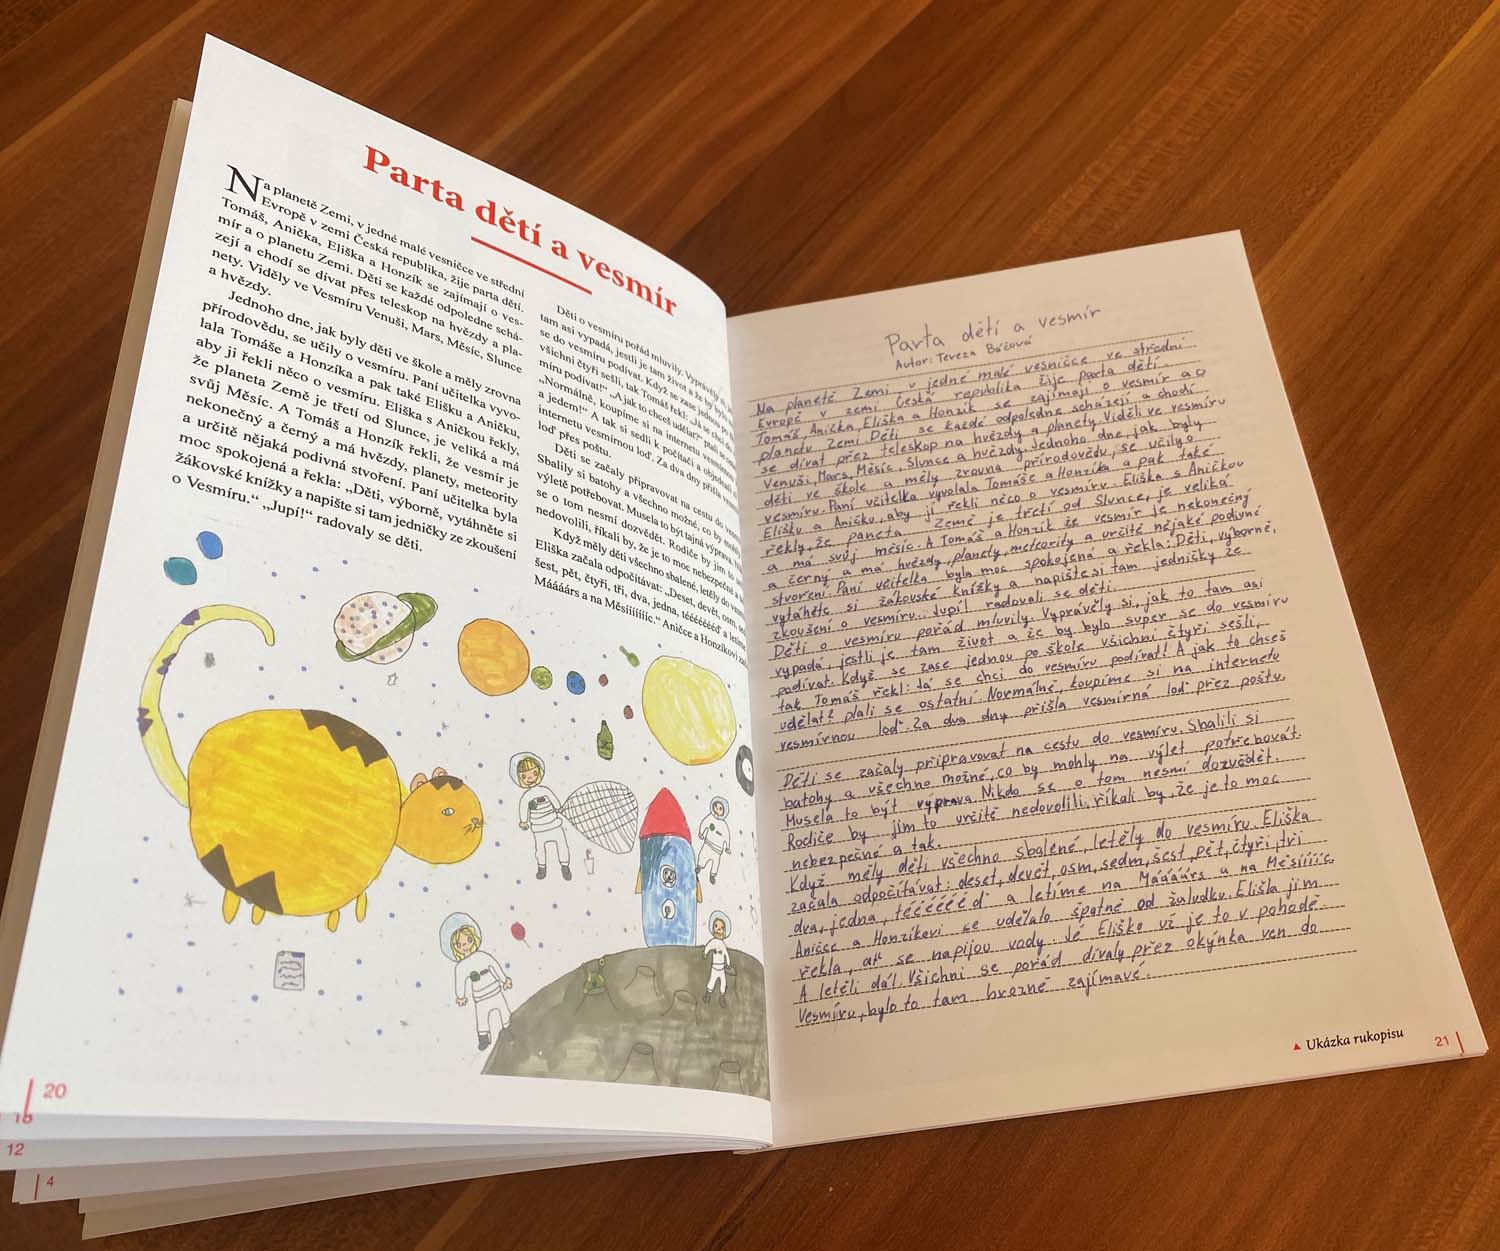 Parta dětí a vesmír
Na planetě Zemi, v jedné malé vesničce ve střední
Evropě v zemi Česká republika, žije parta dětí.
Tomáš, Anička, Eliška a Honzík se zajímají o ves-
mír a o planetu Zemi. Děti se každé odpoledne schá-
zejí a chodí se dívat přes teleskop na hvězdy a pla-
nety. Viděly ve Vesmíru Venuši, Mars, Měsíc, Slunce
a hvězdy.
Jednoho dne, jak byly děti ve škole a měly zrovna
přírodovědu, se učily o vesmíru. Paní učitelka vyvo-
lala Tomáše a Honzíka a pak také Elišku a Aničku,
aby jí řekli něco o vesmíru. Eliška s Aničkou řekly,
že planeta Země je třetí od Slunce, je veliká a má
svůj Měsíc. A Tomáš a Honzík řekli, že vesmír je
nekonečný a černý a má hvězdy, planety, meteority
a určitě nějaká podivná stvoření. Paní učitelka byla
moc spokojená a řekla: „Děti, výborně, vytáhněte si
žákovské knížky a napište si tam jedničky ze zkoušení
o Vesmíru.“ „Jupí!“ radovaly se děti.
Děti o vesmíru pořád mluvily. Vyprávěly si,
tam asi vypadá, jestli je tam život a že by bylo
se do vesmíru podívat. Když se zase jednou po
všichni čtyři sešli, tak Tomáš řekl: „Já se chci do
míru podívat!“ „A jak to chceš udělat?“ ptali se
„Normálně, koupíme si na internetu vesmírnou
a jedem!“ A tak si sedli k počítači a objednali
internetu vesmírnou loď. Za dva dny přišla
loď přes poštu.
Děti se začaly připravovat na cestu do
Sbalily si batohy a všechno možné, co by mohly
výletě potřebovat. Musela to být tajná výprava.
se o tom nesmí dozvědět. Rodiče by jim to
nedovolili, říkali by, že je to moc nebezpečné a
Když měly děti všechno sbalené, letěly do
Eliška začala odpočítávat: „Deset, devět, osm,
šest, pět, čtyři, tři, dva, jedna, tééééééď a letíme
Máááárs a na Měsíííííc.“ Aničce a Honzíkovi
20
16
12
4
Parta dětí a vesmír
Autor: Tereza
Na planetě Zemi v jedné malé vesničce ve střední
Evropě v zemi Česká republika žije parta dětí.
Tomáš, Anička, Eliška a Honzík se zajímají o vesmír a o
planetu Zemi. Děti se každé odpoledne scházejí a chodí
se dívat přez teleskop na hvězdy a planety. Viděli ve vesmíru
Venuši, Mars, Měsíc, Slunce a hvězdy. Jednoho dne, jak byly
děti ve škole a měly zrovna přírodovědu, se učily o
vesmíru. Paní učitelka vyvolala Tomáše a Honzíka a pak také
Elišku a Aničku, aby jí řekli něco o vesmíru. Eliška s Aničkou
řekly, že paneta Země je třetí od Slunce, je veliká
a má svůj měsíc. A Tomáš a Honzík že vesmír je nekonečný
a černý a má hvězdy, planety, meteority a určitě nějaké podivné
stvoření. Paní učitelka byla moc spokojená a řekla: Děti, výborně,
vytáhněte si žákovské knížky a napište si tam jedničky ze
zkoušení o vesmíru. Jupí! radovali se děti.
Děti o vesmíru pořád mluvily. Vyprávěly si, jak to tam asi
vypadá, jestli je tam život a že by bylo super se do vesmíru
podívat. Když se zase jednou po škole všichni čtyři sešli,
tak Tomáš řekl: Já se chci do vesmíru podívat! A jak to chceš
udělat? ptali se ostatní. Normálně, koupíme si na internetu
vesmírnou loď. Za dva dny přišla vesmírná loď přez poštu.
Děti se začaly připravovat na cestu do vesmíru. Sbalili si
batohy a všechno možné, co by mohly na výlet potřebovat.
Musela to být výprava. Nikdo se o tom nesmí dozvědět.
Rodiče by jim to určitě nedovolili, říkali by, že je to moc
nebezpečné a tak.
Když měly děti všechno sbalené, letěly do vesmíru. Eliška
začala odpočítávat: deset, devět, osm, sedm, šest, pět, čtyři, tři
dva, jedna, tééééééď a letíme na Máááárs a na Měsíííííc.
Aničce a Honzíkovi se udělalo špatně od žaludku. Eliška jim
řekla, ať se napijou vody. Jé Eliško už je to v pohodě.
A letěli dál. Všichni se pořád dívaly přez okýnka ven do
Vesmíru, bylo to tam hrozně zajímavé.
Ukázka rukopisu
21